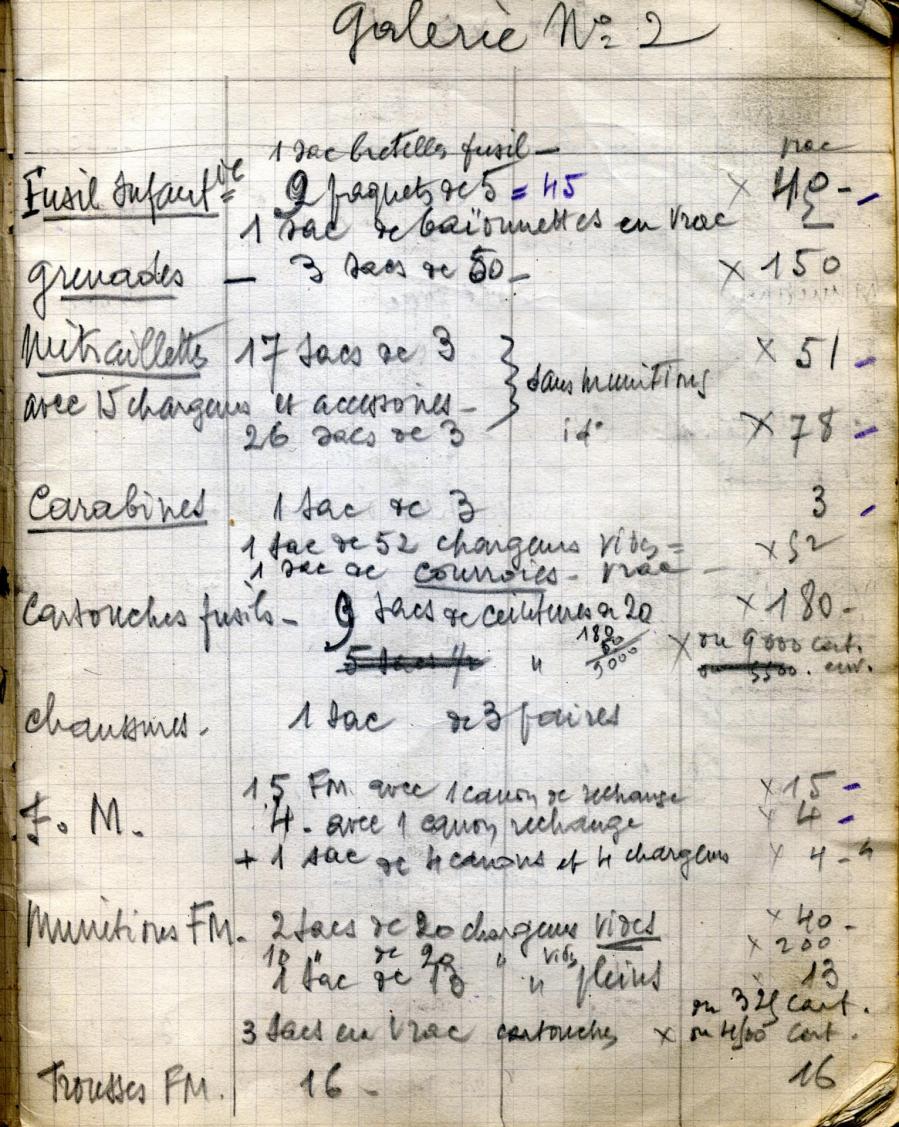 Galerie N° 2
1 sac bretelles fusil — vrac
Fusil Infant^ie 9 paquets de 5 = 45 × 40 -
1 sac de baïonnettes en vrac
grenades — 3 sacs de 50 - × 150
Mitraillettes 17 sacs de 3 × 51
avec 15 chargeurs et accessoires - } sans munitions
26 sacs de 3 id° × 78
Carabines 1 sac de 3 3
1 sac de 52 chargeurs vides = × 52
1 sac de courroies - vrac -
Cartouches fusils - 9 sacs de ceintures de 20 × 180 -
5 sacs 1/2 " 180 50 9000 × ou 9000 cart.
ou 5500 . env.
chaussures. 1 sac de 3 paires
F. M. 15 FM. avec 1 canon de rechange × 15
4 - avec 1 canon rechange × 4
+ 1 sac de 4 canons et 4 chargeurs × 4 - 4
Munitions FM. 2 sacs de 20 chargeurs vides × 40 -
10 " de 20 " vides × 200
1 sac de 13 " pleins 13
ou 325 cart.
3 sacs en vrac cartouches × ou 4500 cart.
Trousses FM. 16 - 16